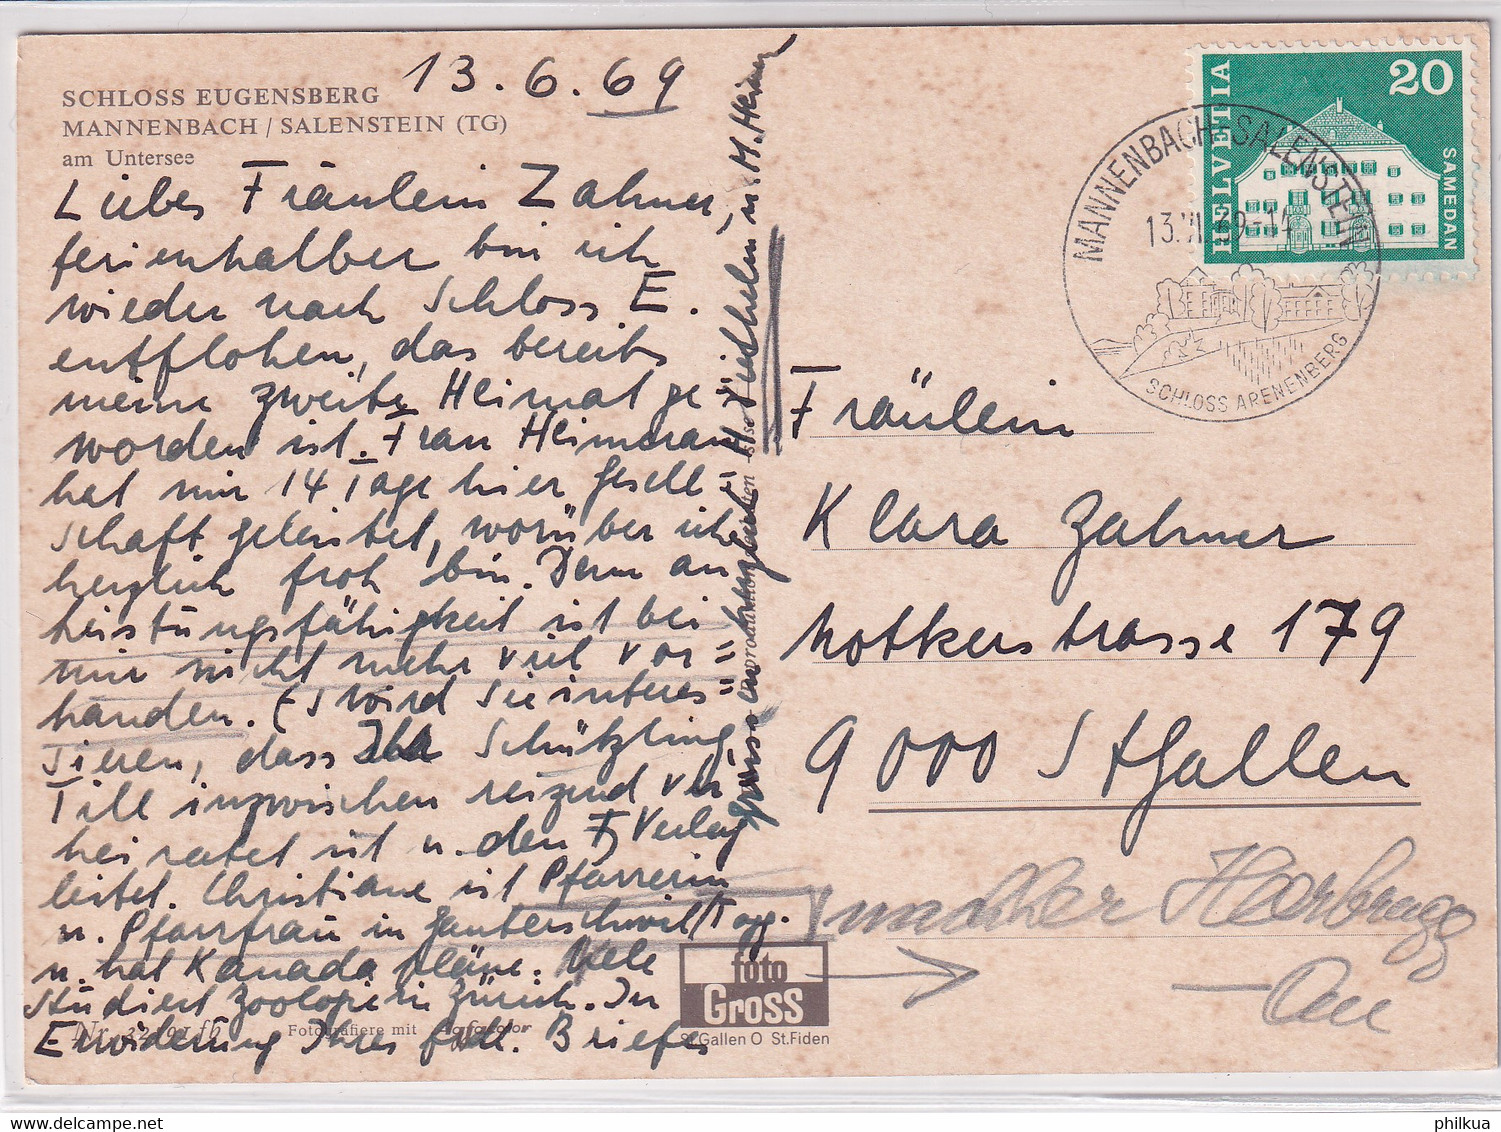 SCHLOSS EUGENSBERG
MANNENBACH / SALENSTEIN (TG)
am Untersee
13.6.69
Liebes Fräulein Zahner,
ferienhalber bin ich
wieder nach Schloss E.
entflohen, das bereits
meine zweite Heimat ge
worden ist. Frau Heimeran
hat mir 14 Tage hier Gesell-
schaft geleistet, worüber ich
herzlich froh bin. Denn an
leistungsfähigkeit ist bei
mir nicht mehr viel vor=
handen. Es wird Sie interes=
sieren, dass Ihr Schützling
Till inzwischen reizend ver
heiratet ist u. den Verlag
leitet. Christiane ist Pfarrerin
u. Pfarrfrau in Ganterschwil/Togg.
u. hat Kanada pläne. Nele
studiert Zoologie in Zürich. In
Erwiderung Ihres frdl. Briefes
grüsse
H. u. M. Heimer
HELVETIA
20
SAMEDAN
MANNENBACH-SALENSTEIN
13.VI.69-14
SCHLOSS ARENENBERG
Fräulein
Klara Zahner
Notkerstrasse 179
9000 St Gallen
Heerbrugg
— Au
foto
GROSS
St.Gallen O St.Fiden
Fotografiere mit Agfacolor
philkua